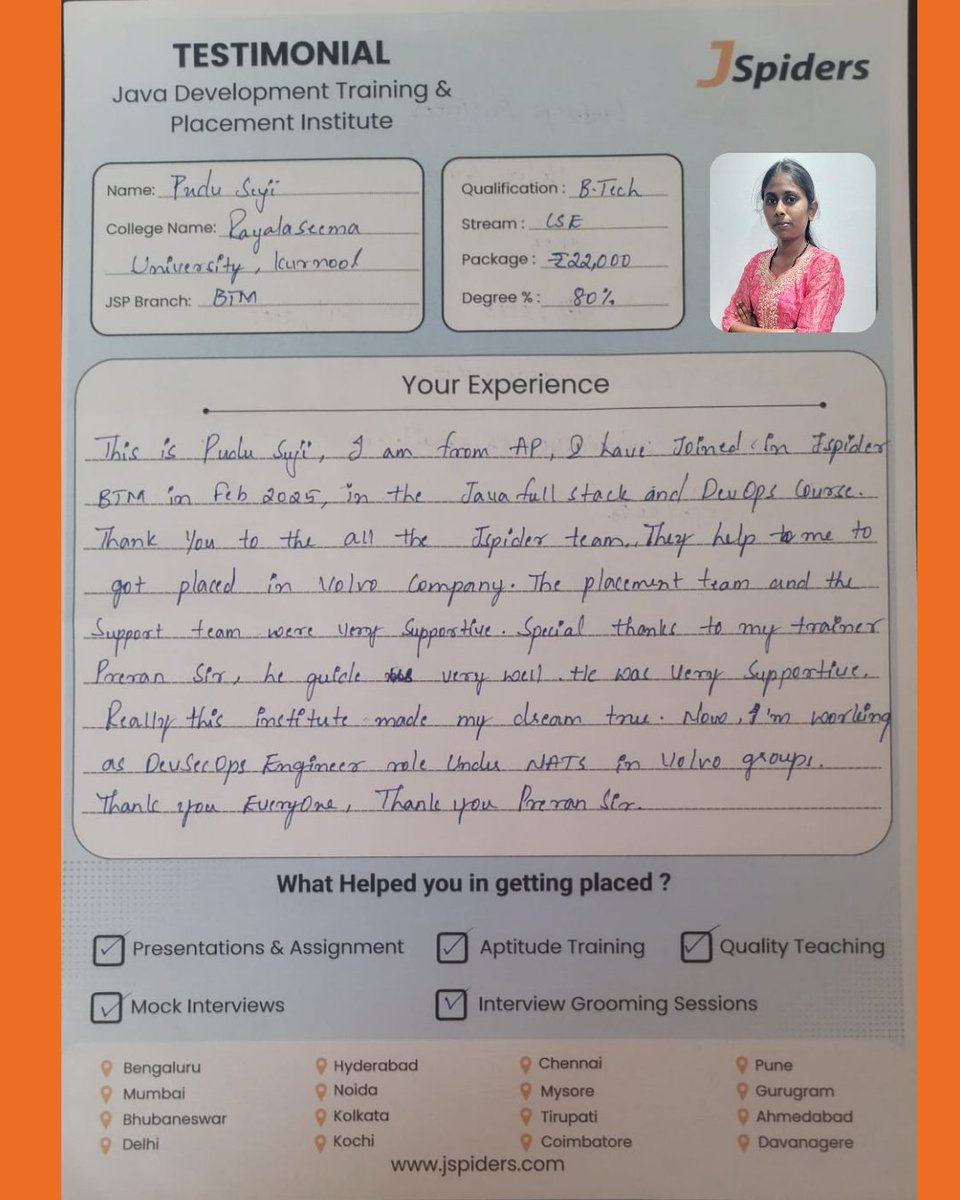 TESTIMONIAL
Java Development Training &
Placement Institute
JSpiders
Name: Pudu Suji
College Name: Rayalaseema
University, Kurnool
JSP Branch: BTM
Qualification : B.Tech
Stream : CSE
Package : ₹22,000
Degree % : 80%
Your Experience
This is Pudu Suji, I am from AP, I have Joined in Jspider
BTM in Feb 2025, in the Java full stack and DevOps Course.
Thank You to the all the Jspider team. They help to me to
got placed in Volvo Company. The placement team and the
Support team were very Supportive. Special thanks to my trainer
Preran Sir, he guide very well. He was Very Supportive.
Really this institute made my dream true. Now, I'm working
as DevSecOps Engineer role Under NATS in Volvo groups.
Thank you EveryOne, Thank you Preran Sir.
What Helped you in getting placed ?
Presentations & Assignment
Aptitude Training
Quality Teaching
Mock Interviews
Interview Grooming Sessions
Bengaluru
Mumbai
Bhubaneswar
Delhi
Hyderabad
Noida
Kolkata
Kochi
Chennai
Mysore
Tirupati
Coimbatore
Pune
Gurugram
Ahmedabad
Davanagere
www.jspiders.com